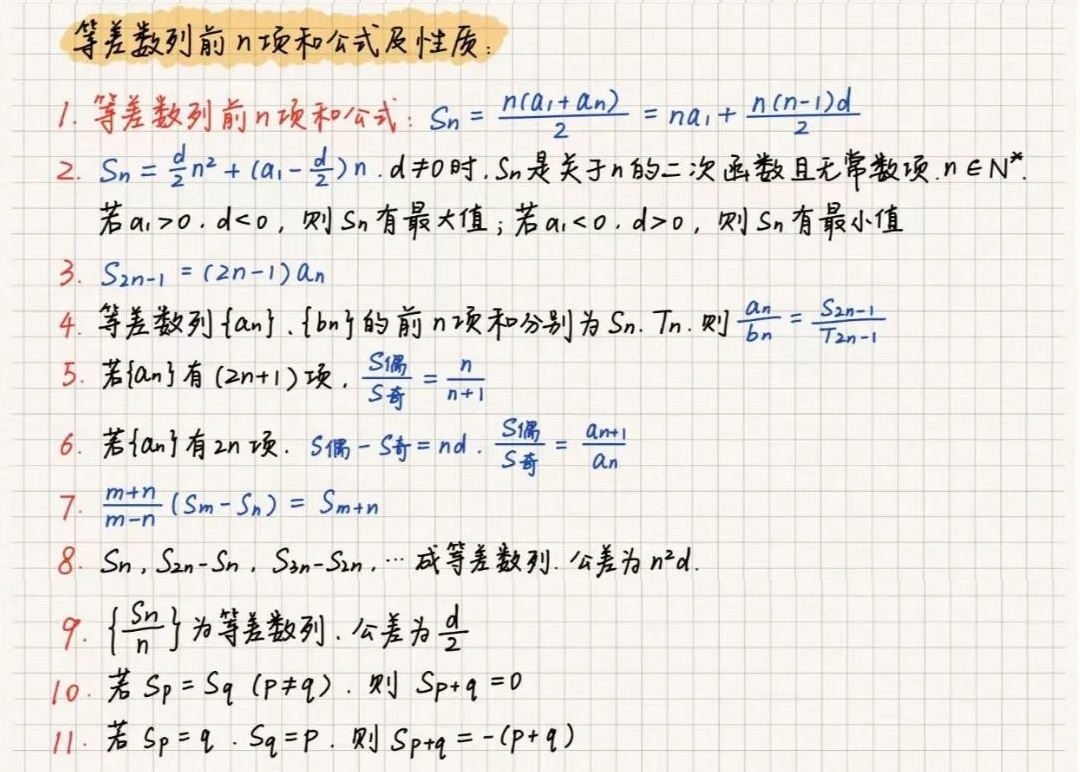 等差数列前n项和公式及性质:
1. 等差数列前n项和公式: Sn = n(a₁+an)/2 = na₁ + n(n-1)d/2
2. Sn = d/2 n² + (a₁ - d/2)n. d≠0时, Sn是关于n的二次函数且无常数项. n∈N*.
若a₁>0. d<0, 则Sn有最大值; 若a₁<0. d>0, 则Sn有最小值
3. S₂n₋₁ = (2n-1)an
4. 等差数列{an}、{bn}的前n项和分别为Sn. Tn. 则 an/bn = S₂n₋₁/T₂n₋₁
5. 若{an}有(2n+1)项, S偶/S奇 = n/n+1
6. 若{an}有2n项. S偶 - S奇 = nd. S偶/S奇 = an+1/an
7. m+n/m-n (Sm - Sn) = Sm+n
8. Sn, S₂n-Sn, S₃n-S₂n, … 成等差数列. 公差为n²d.
9. {Sn/n}为等差数列. 公差为 d/2
10. 若 Sp = Sq (p≠q). 则 Sp+q = 0
11. 若 Sp = q. Sq = p. 则 Sp+q = -(p+q)